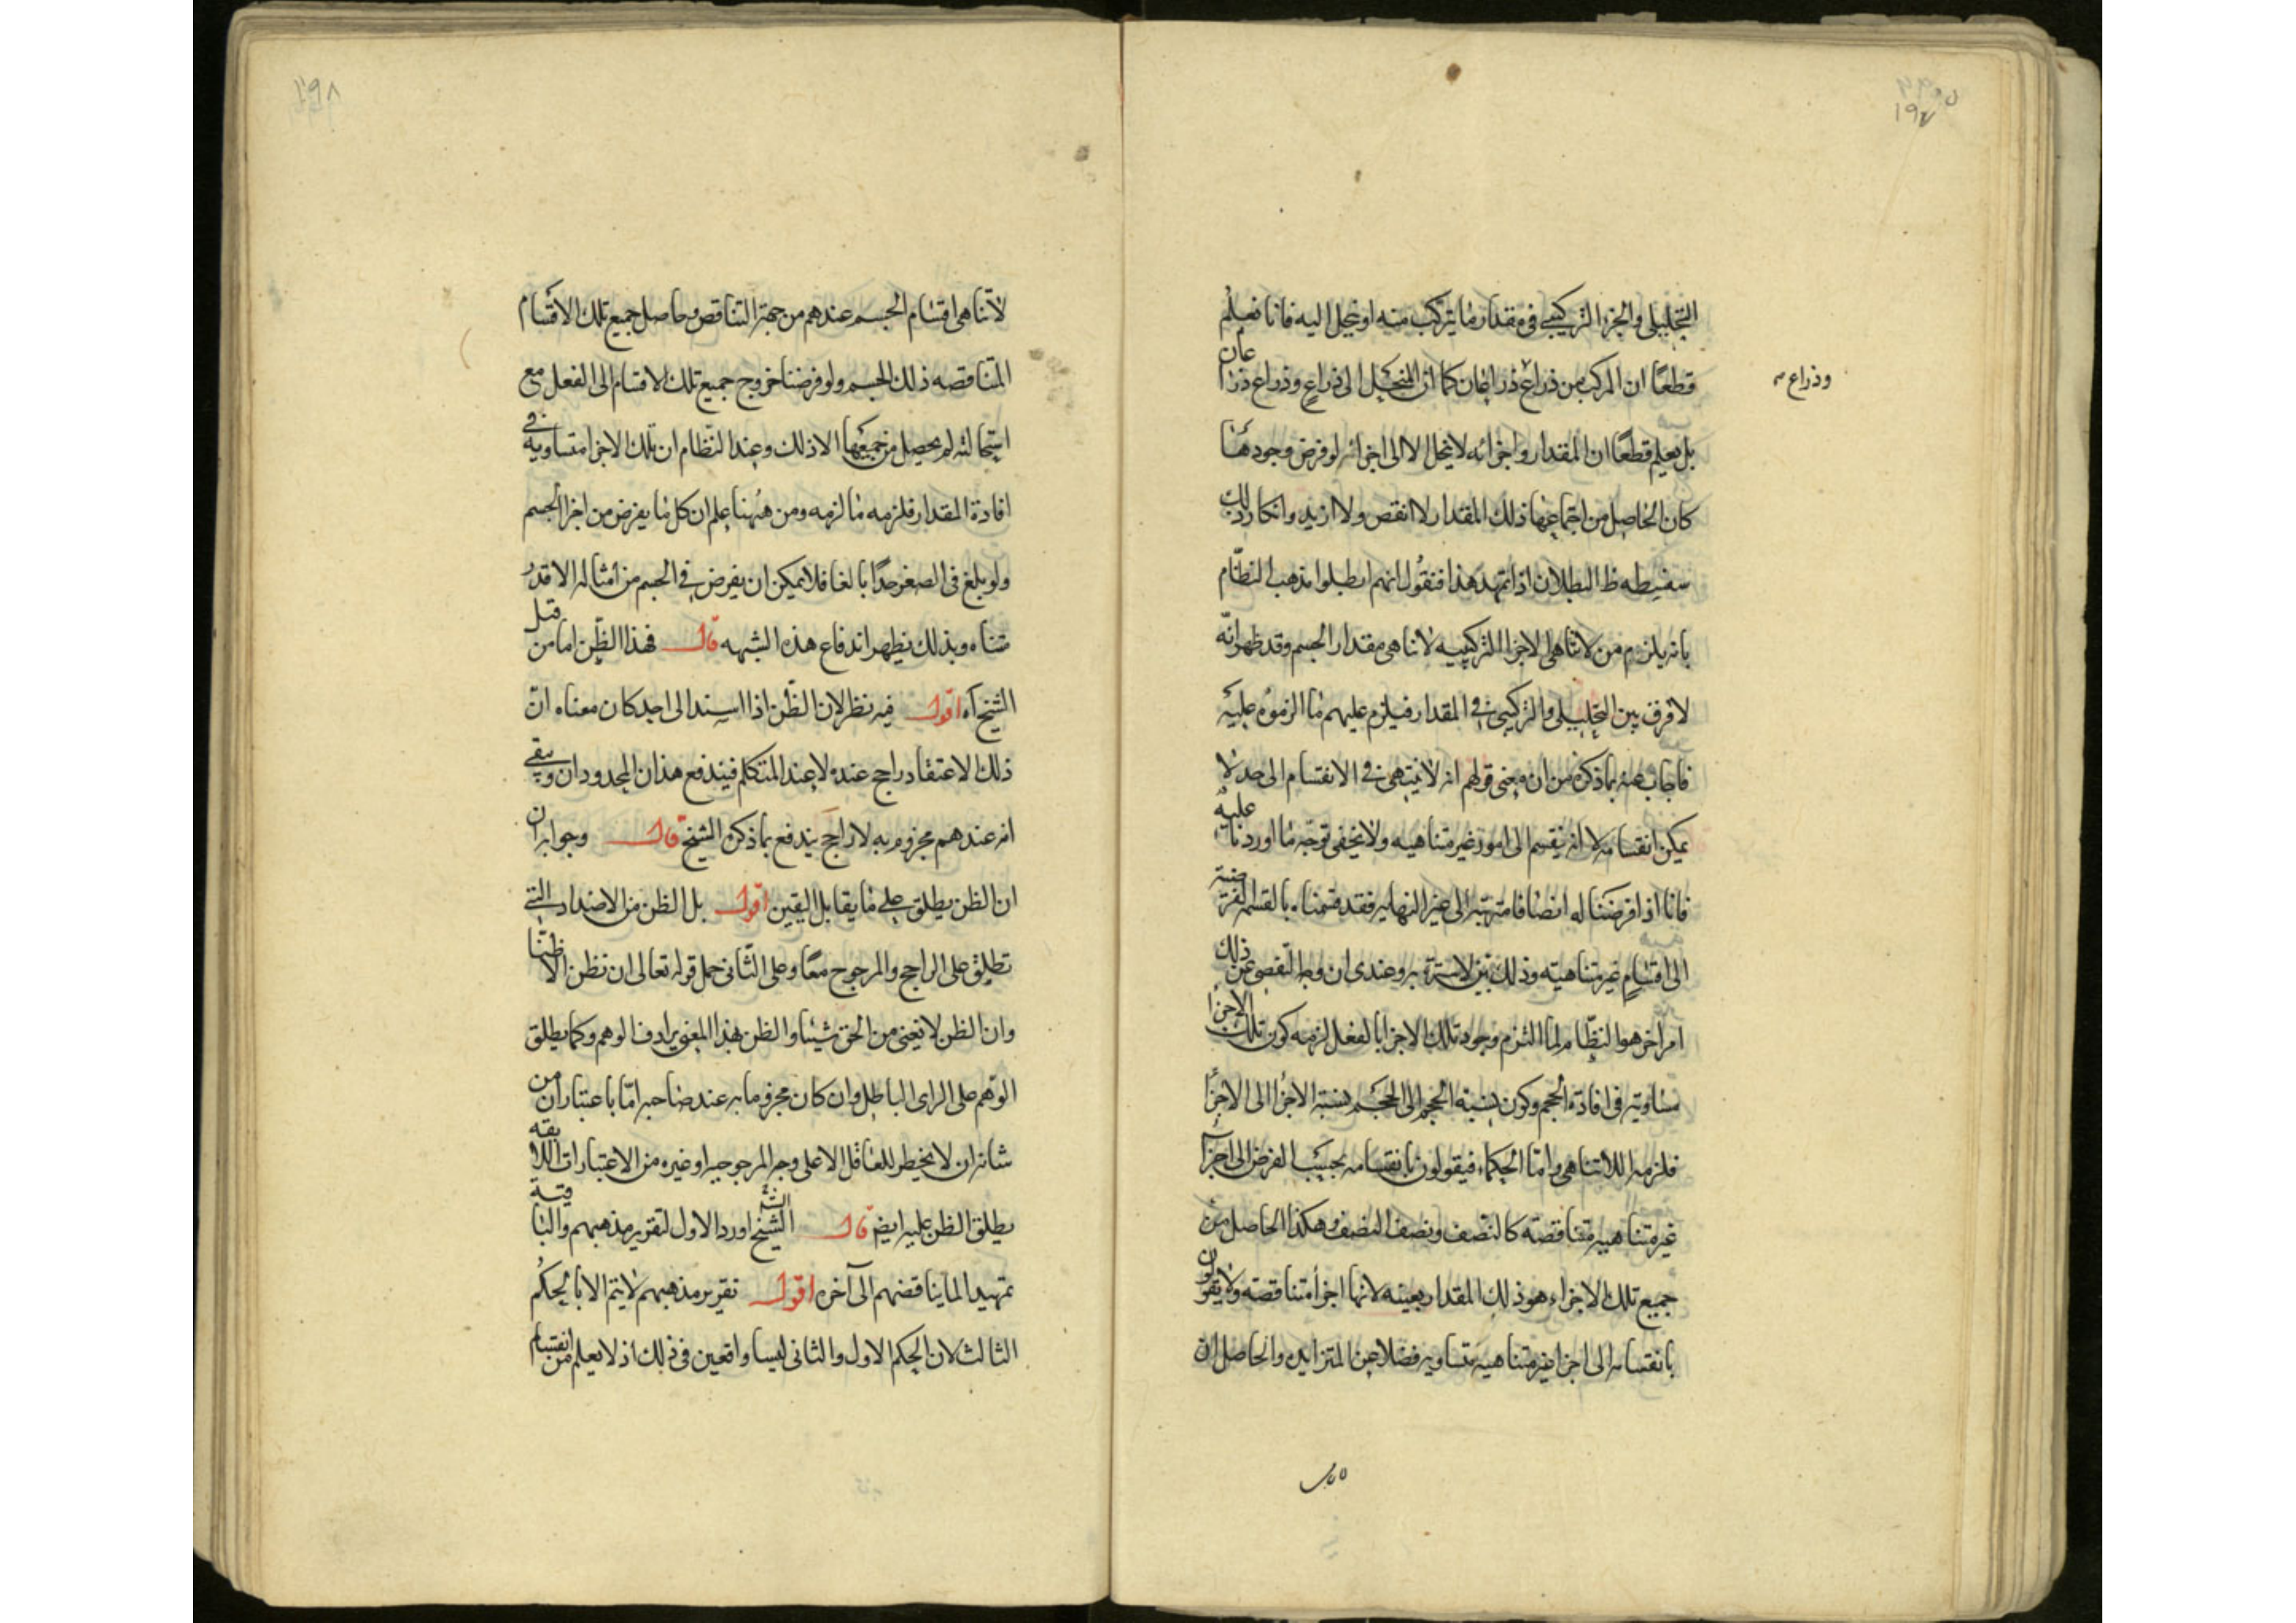 ١٩٧
التحليلى والجزء التركيبى فى مقدار ما يتركب منه او ينحل اليه فانا نعلم
قطعًا ان المركب من ذراع ذراعان كما ان المنحل الى ذراع وذراع ذراعان
وذراع
بل نعلم قطعًا ان المقدار واجزائه لا ينحل الا الى اجزائه لو فرض وجودها
كان الحاصل من اجتماعها ذلك المقدار لا انقص ولا ازيد وانكار ذلك
سفسطه ظ البطلان اذا تمهد هذا فنقول انهم ابطلوا مذهب النظّام
بانه يلزم من لاتناهى الاجزا التركيبيه لاتناهى مقدار الجسم وقد ظهر انّه
لا فرق بين التحليلى والتركيبى فى المقدار فيلزم عليهم ما الزموه عليه
فاجاب عنه بما ذكره من ان معنى قولهم انه لا ينتهى فى الانقسام الى حد لا
يمكن انقسامه لا انه ينقسم الى امور غير متناهيه ولا يخفى توجّه ما اوردنا عليه
فانا اذا فرضنا له انصافا مترتبه الى غير النهايه فقد قسمناه بالقسمه الفرضية
الى اقسام غير متناهيته وذلك بيّن لا سترة به وعندى ان وجه التفصى عن ذلك
امر اخر هو النظّام لما التزم وجود تلك الاجزا بالفعل لزمه كون تلك الاجزا
متساويته فى افادة الحجم وكون نسبة الحجم الى الحجم نسبة الاجزا الى الاجزا
فلزمه اللاتناهى وامّا الحكماء فيقولون بانقسامه بحسب الفرض الى اجزا
غير متناهيه متناقصته كالنصف ونصف النصف وهكذا الحاصل من
جميع تلك الاجزاء هو ذلك المقدار بعينه لانها اجزأ متناقصته ولا يقولون
بانقسامه الى اجزا غير متناهيه متساويه فضلا عن المتزايده والحاصل ان
١٩٨
لاتناهى اقسام الجسم عندهم من جهة التناقص وحاصل جميع تلك الاقسام
المتناقصه ذلك الجسم ولو فرضنا خروج جميع تلك الاقسام الى الفعل مع
استحالته لم يحصل من جميعها الا ذلك وعند النظّام ان تلك الاجزا متساويه فى
افادة المقدار فلزمه ما لزمه ومن ههنا علم ان كل ما يفرض من اجزا الجسم
ولو بلغ فى الصغر حدًا بالغا فلا يمكن ان يفرض فى الجسم من امثاله الا قدر
متناه وبذلك يظهر اندفاع هذه الشبهه قال فهذا الظن اما من قبل
الشيخ آه اقول فيه نظر لان الظن اذا اسند الى احد كان معناه انّ
ذلك الاعتقاد راجح عنده لا عند المتكلم فيندفع هذان المحدودان ويبقى
انه عندهم مجزوم به لا راجح يندفع بما ذكره الشيخ قال وجوابه ان
ان الظن يطلق على ما يقابل اليقين اقول بل الظن من الاضداد التى
تطلق على الراجح والمرجوح معًا وعلى الثانى حمل قوله تعالى ان نظن الا ظنّا
وان الظن لا يغنى من الحق شيئا والظن بهذا المعنى يرادف الوهم وكما يطلق
الوهم على الراى الباطل وان كان مجزوما به عند صاحبه امّا باعتبار ان من
شانه ان لا يخطر للعاقل الا على وجه المرجوحيه او غيره من الاعتبارات اللايقه
يطلق الظن عليه ايضً قال الشيخ اورد الاول لتقرير مذهبهم والباقية
تمهيدا لما يناقضهم الى آخره اقول تقرير مذهبهم لا يتم الا بالحكم
الثالث لان الحكم الاول والثانى ليسا واقعين فى ذلك اذ لا يعلم من انقسام